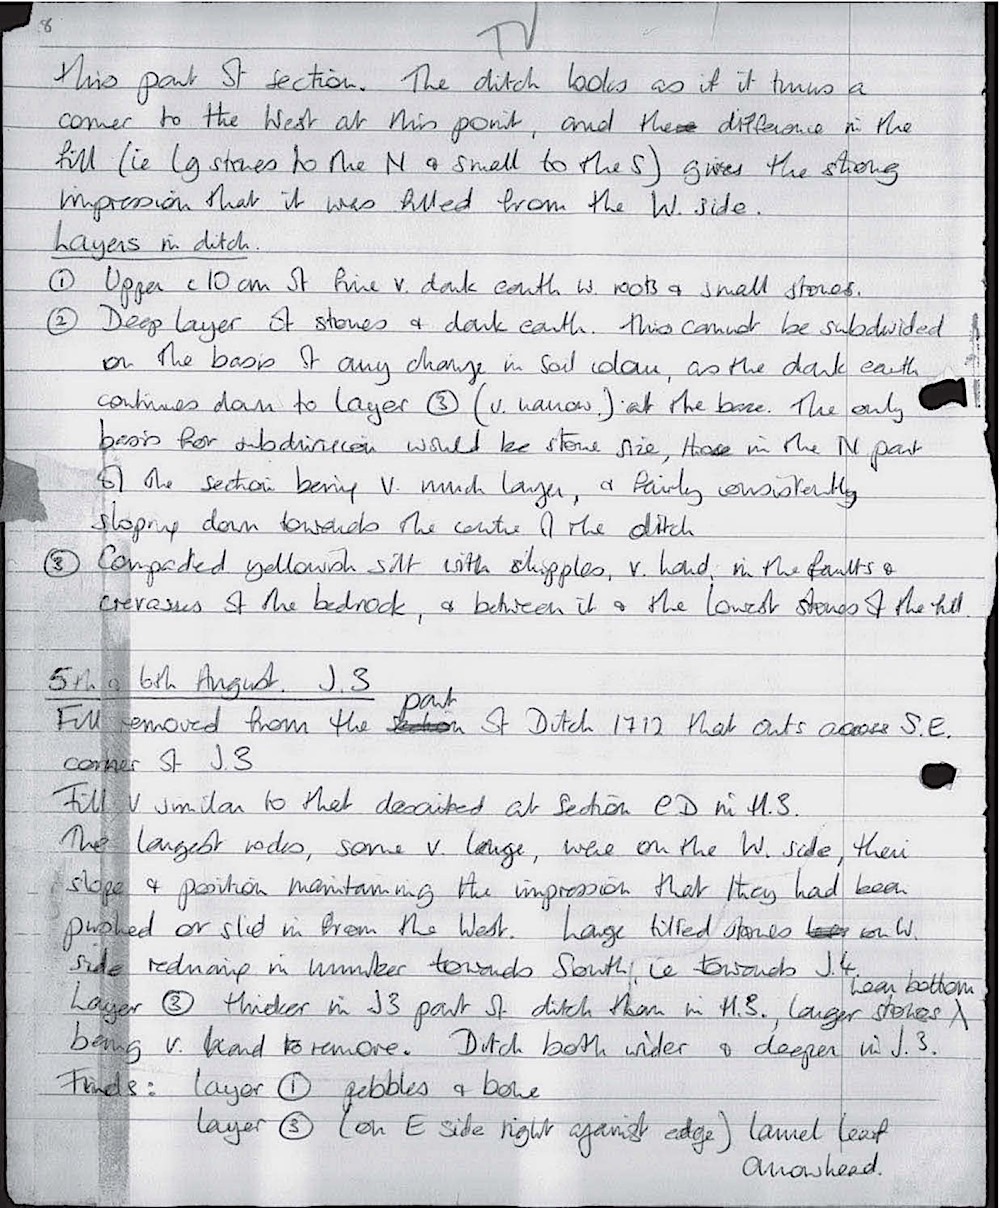 8
TV
this part of section. The ditch looks as if it turns a
corner to the West at this point, and the difference in the
fill (ie lg stones to the N & small to the S) gives the strong
impression that it was filled from the W. side.
Layers in ditch.
① Upper c10 cm of fine v. dark earth w. roots & small stones.
② Deep layer of stones & dark earth. This cannot be subdivided
on the basis of any change in soil colour, as the dark earth
continues down to layer ③ (v. narrow) at the base. The only
basis for subdivision would be stone size, those in the N part
of the section being v. much larger, & fairly consistently
sloping down towards the centre of the ditch
③ Compacted yellowish silt with shipples, v. hard, in the faults &
crevasses of the bedrock, & between it & the lowest stones of the fill.
5th & 6th August. J.3
Fill removed from the section part of Ditch 1712 that cuts across S.E.
corner of J.3
Fill v similar to that described at Section CD in H.3.
The largest rocks, some v. large, were on the W. side, their
slope & position maintaining the impression that they had been
pushed or slid in from the West. Large tilted stones on W.
side reducing in number towards South, ie towards J.4.
Layer ③ thicker in J3 part of ditch than in H.3., larger stones near bottom
being v. hard to remove. Ditch both wider & deeper in J.3.
Finds: layer ① pebbles & bone
layer ③ (on E side right against edge) laurel leaf
arrowhead.